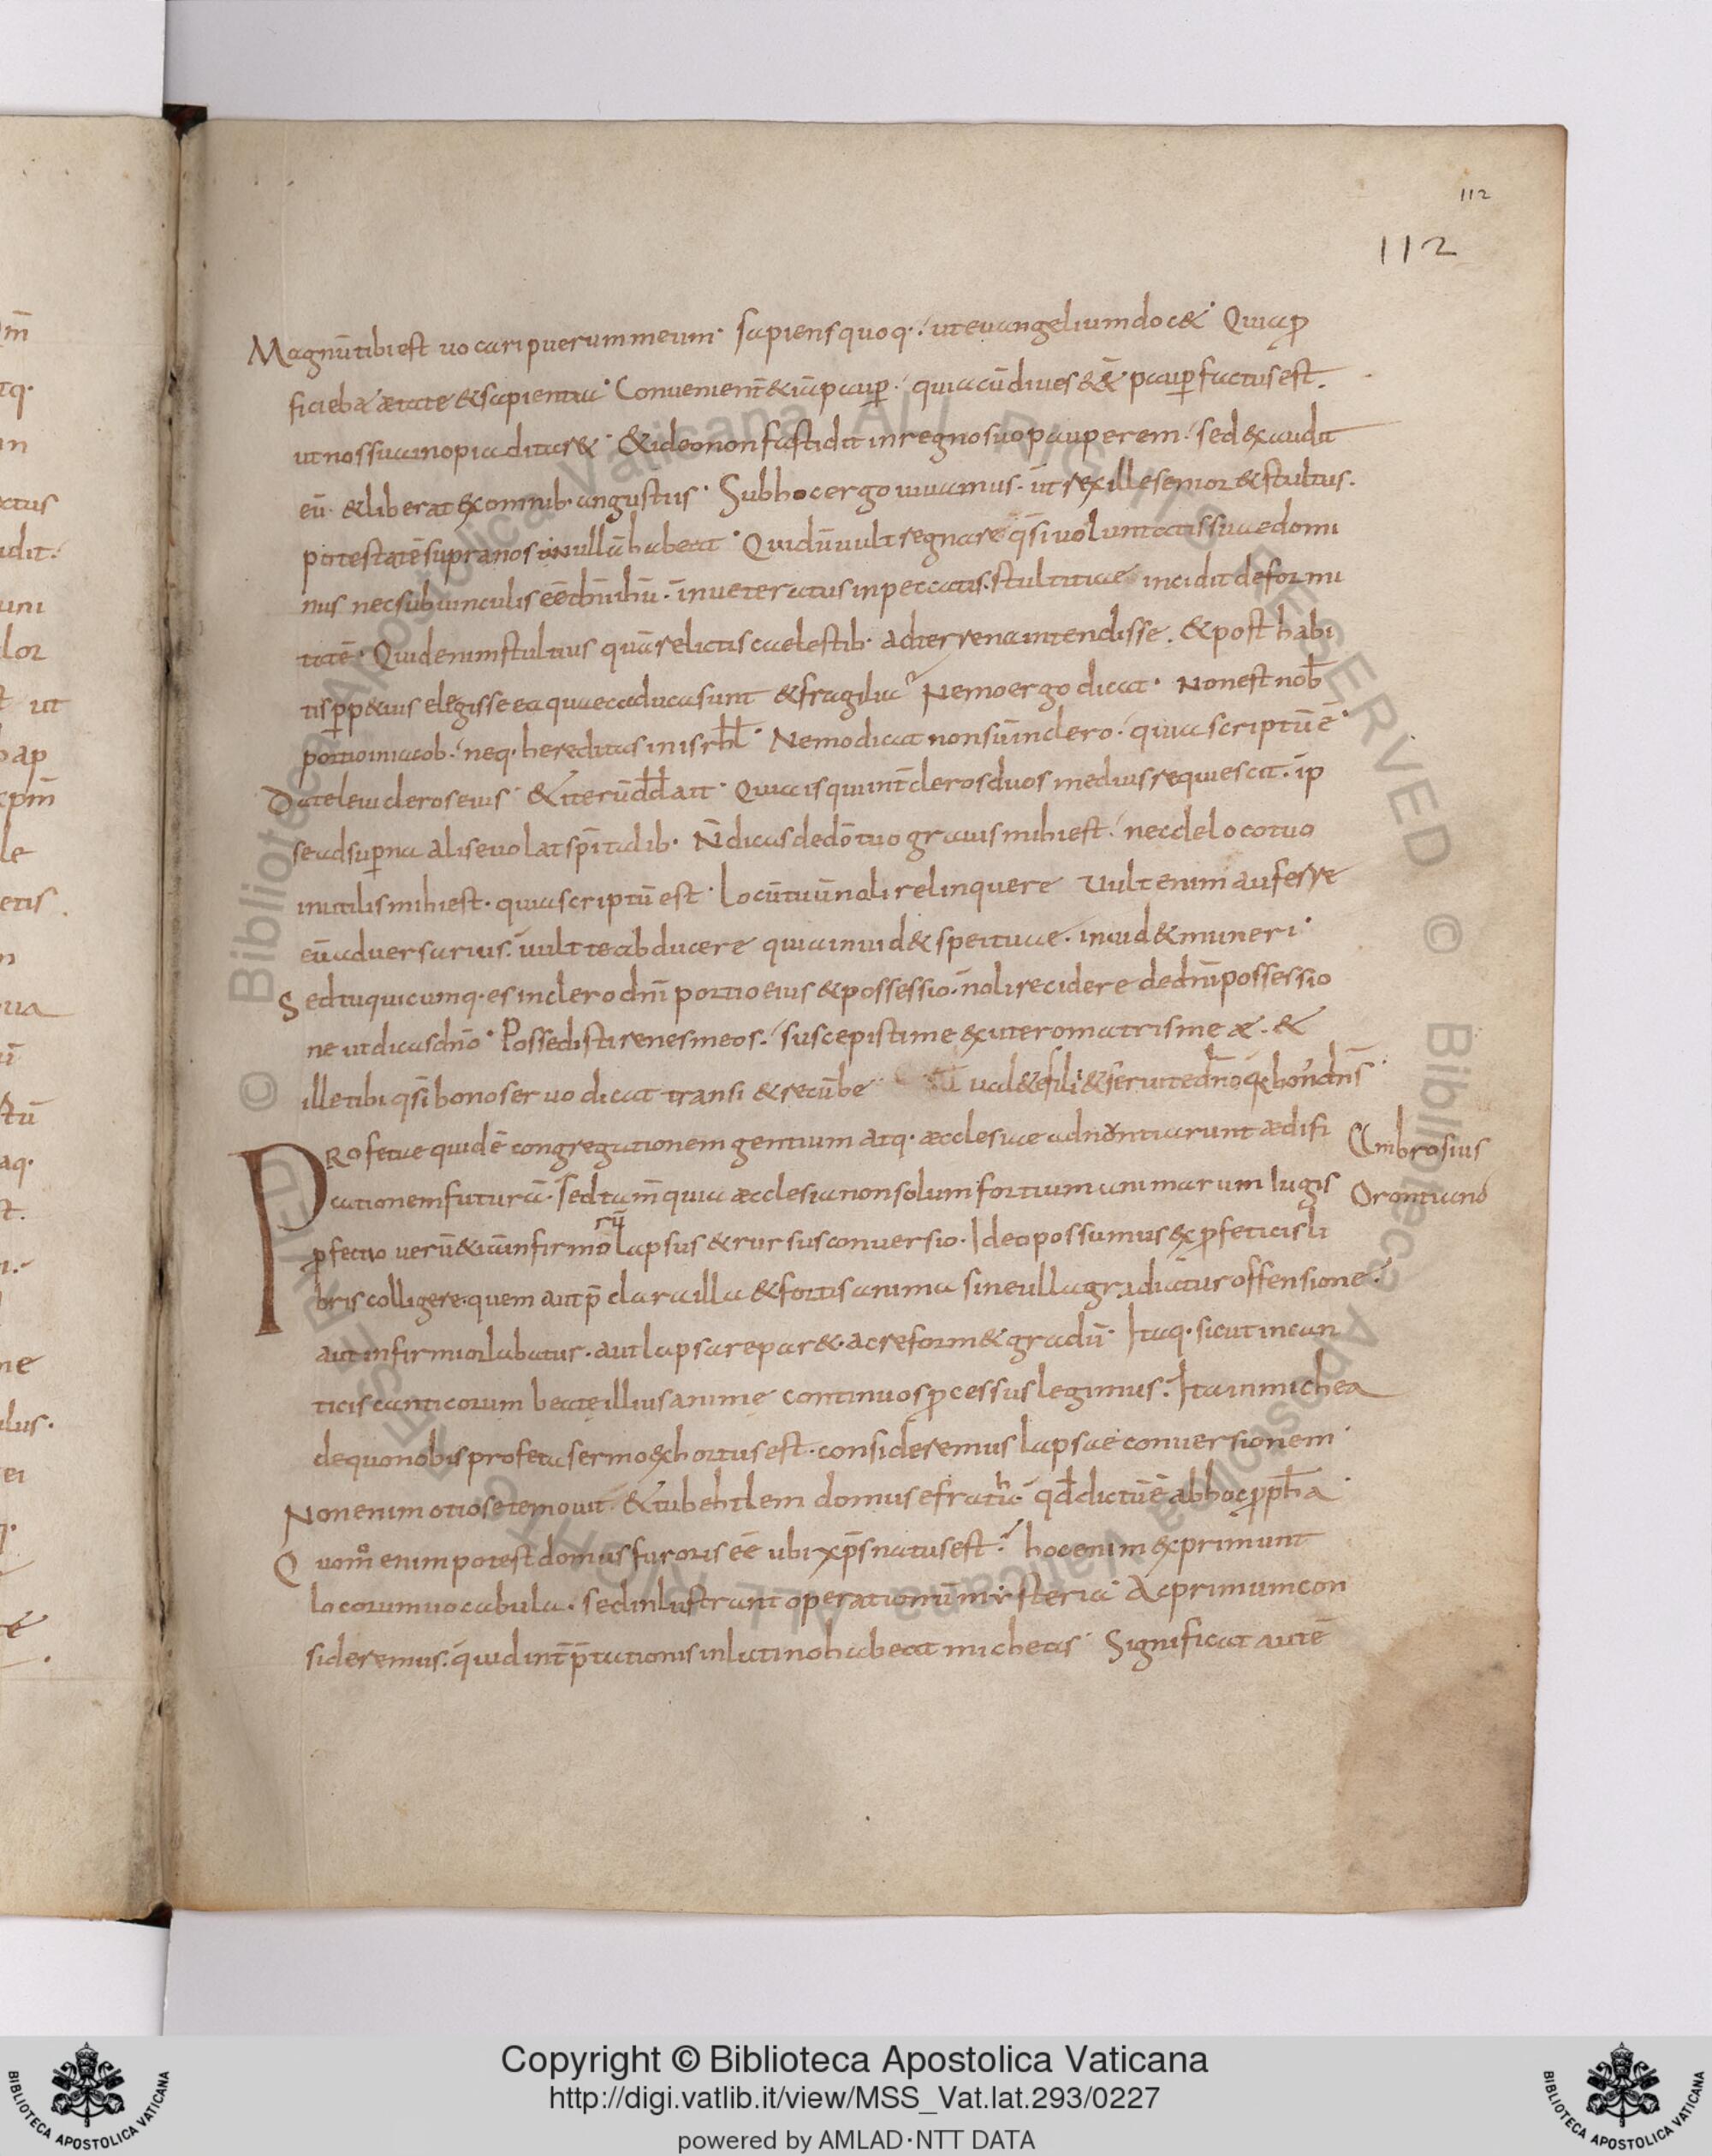 112
112
Magnū tibi est uocari puerum meum· sapiens quoq· ut euangelium doc& Quia ꝓ
ficieba& ætate & sapientia· Conuenient̄ & iā pauꝑ· quia cū diues e&̄ pauꝑ factus est.
ut nos sua inopia ditar&· & ideo non fastidit in regno suo pauperem· sed exaudit
eū· & liberat ex omnib· angustiis· Sub hoc ergo uiuamus· ut rex ille senior & stultus.
potestatē supra nos nullā habeat· Qui dū uult regnare q̄si uoluntatis suae domi
nus nec sub uinculis eē dn̄i ihū· inueteratus in peccatis. stultitiae incidit deformi
tatē· Quid enim stultius quā relictis caelestib· ad terrena intendisse. & post habi
tis ꝑp&uis elegisse ea quae caduca sunt & fragilia? Nemo ergo dicat· Non est nob̄
portio in iacob· neq· hereditas in isrhl̄· Nemo dicat non sū in clero· quia scriptū ē·
Date leui cleros eius· & iterū dd̄ ait· Quia is qui int̄ cleros duos medius requiescit· ip
se ad suꝑna alis euolat sp̄italib· N̄ dicas de dō tuo grauis mihi est· nec de loco tuo
inutilis mihi est· quia scriptū est· Locū tuū noli relinquere Uult enim auferre
eū aduersarius. uult te abducere quia inuid& spei tuae. inuid& muneri·
Sed tu qui cumq· es in clero dn̄i portio eius & possessio· noli recidere de dn̄i possessio
ne ut dicas dn̄o· Possedisti renes meos· suscepisti me ex utero matris meæ. &
ille tibi q̄si bono seruo dicat transi & recūbe uale fili & serui te dn̄o
PRofetae quidē congregationem gentium atq· æcclesiae adnūntiarunt ædifi
Ambrosius
cationem futurā· Sed tam̄ quia æcclesia non solum fortium animarum iugis
Orontiano
ꝓfectio uerū & iā infirmorū lapsus & rursus conuersio· Ideo possumus ex ꝓfeticis li
bris colligere· quem autp̄ clara illa & fortis anima sine ulla gradiatur offensione·
aut infirmior labatur· aut lapsa repar& ac reform& gradū· Itaq· sicut in can
ticis canticorum beatę illius animę continuos ꝓcessus legimus· Ita in michea
de quo nobis profeta sermo exhortus est· consideremus lapsae conuersionem·
Non enim otiose te mouit· & tu behtlem domus efrata· qd̄ dictū ē ab hoc ꝓph̄a·
Quom̊ enim potest domus furoris eē ubi xp̄s natus est? hoc enim exprimunt
locorum uocabula· sed inlustrant operationū mysteria· Ac primum con
sideremus· quid int̄p̄tationis in latino habeat micheas· Significat autē
Copyright © Biblioteca Apostolica Vaticana
http://digi.vatlib.it/view/MSS_Vat.lat.293/0227
powered by AMLAD·NTT DATA